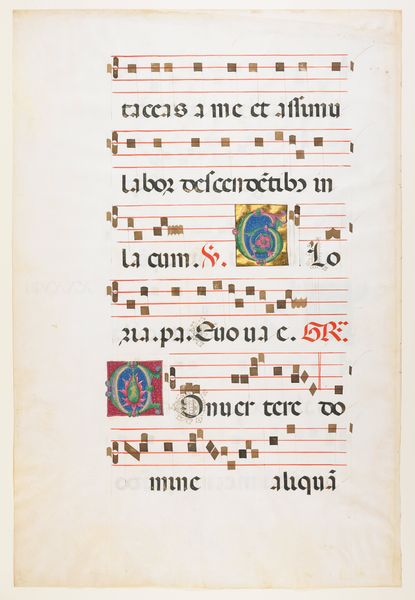 taceas a me et assimil
labor descendẽtibꝫ in
lacum. V. Glo
ria. p̃a. Euouae. GR̃.
Conuertere do
mine aliquã